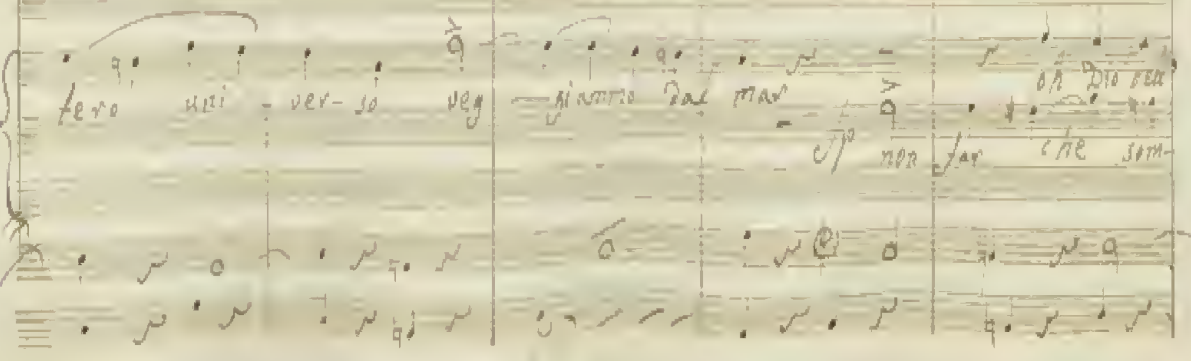 tero uni - ver - so veg - giammo dal mar
oh Dio
non far che som-